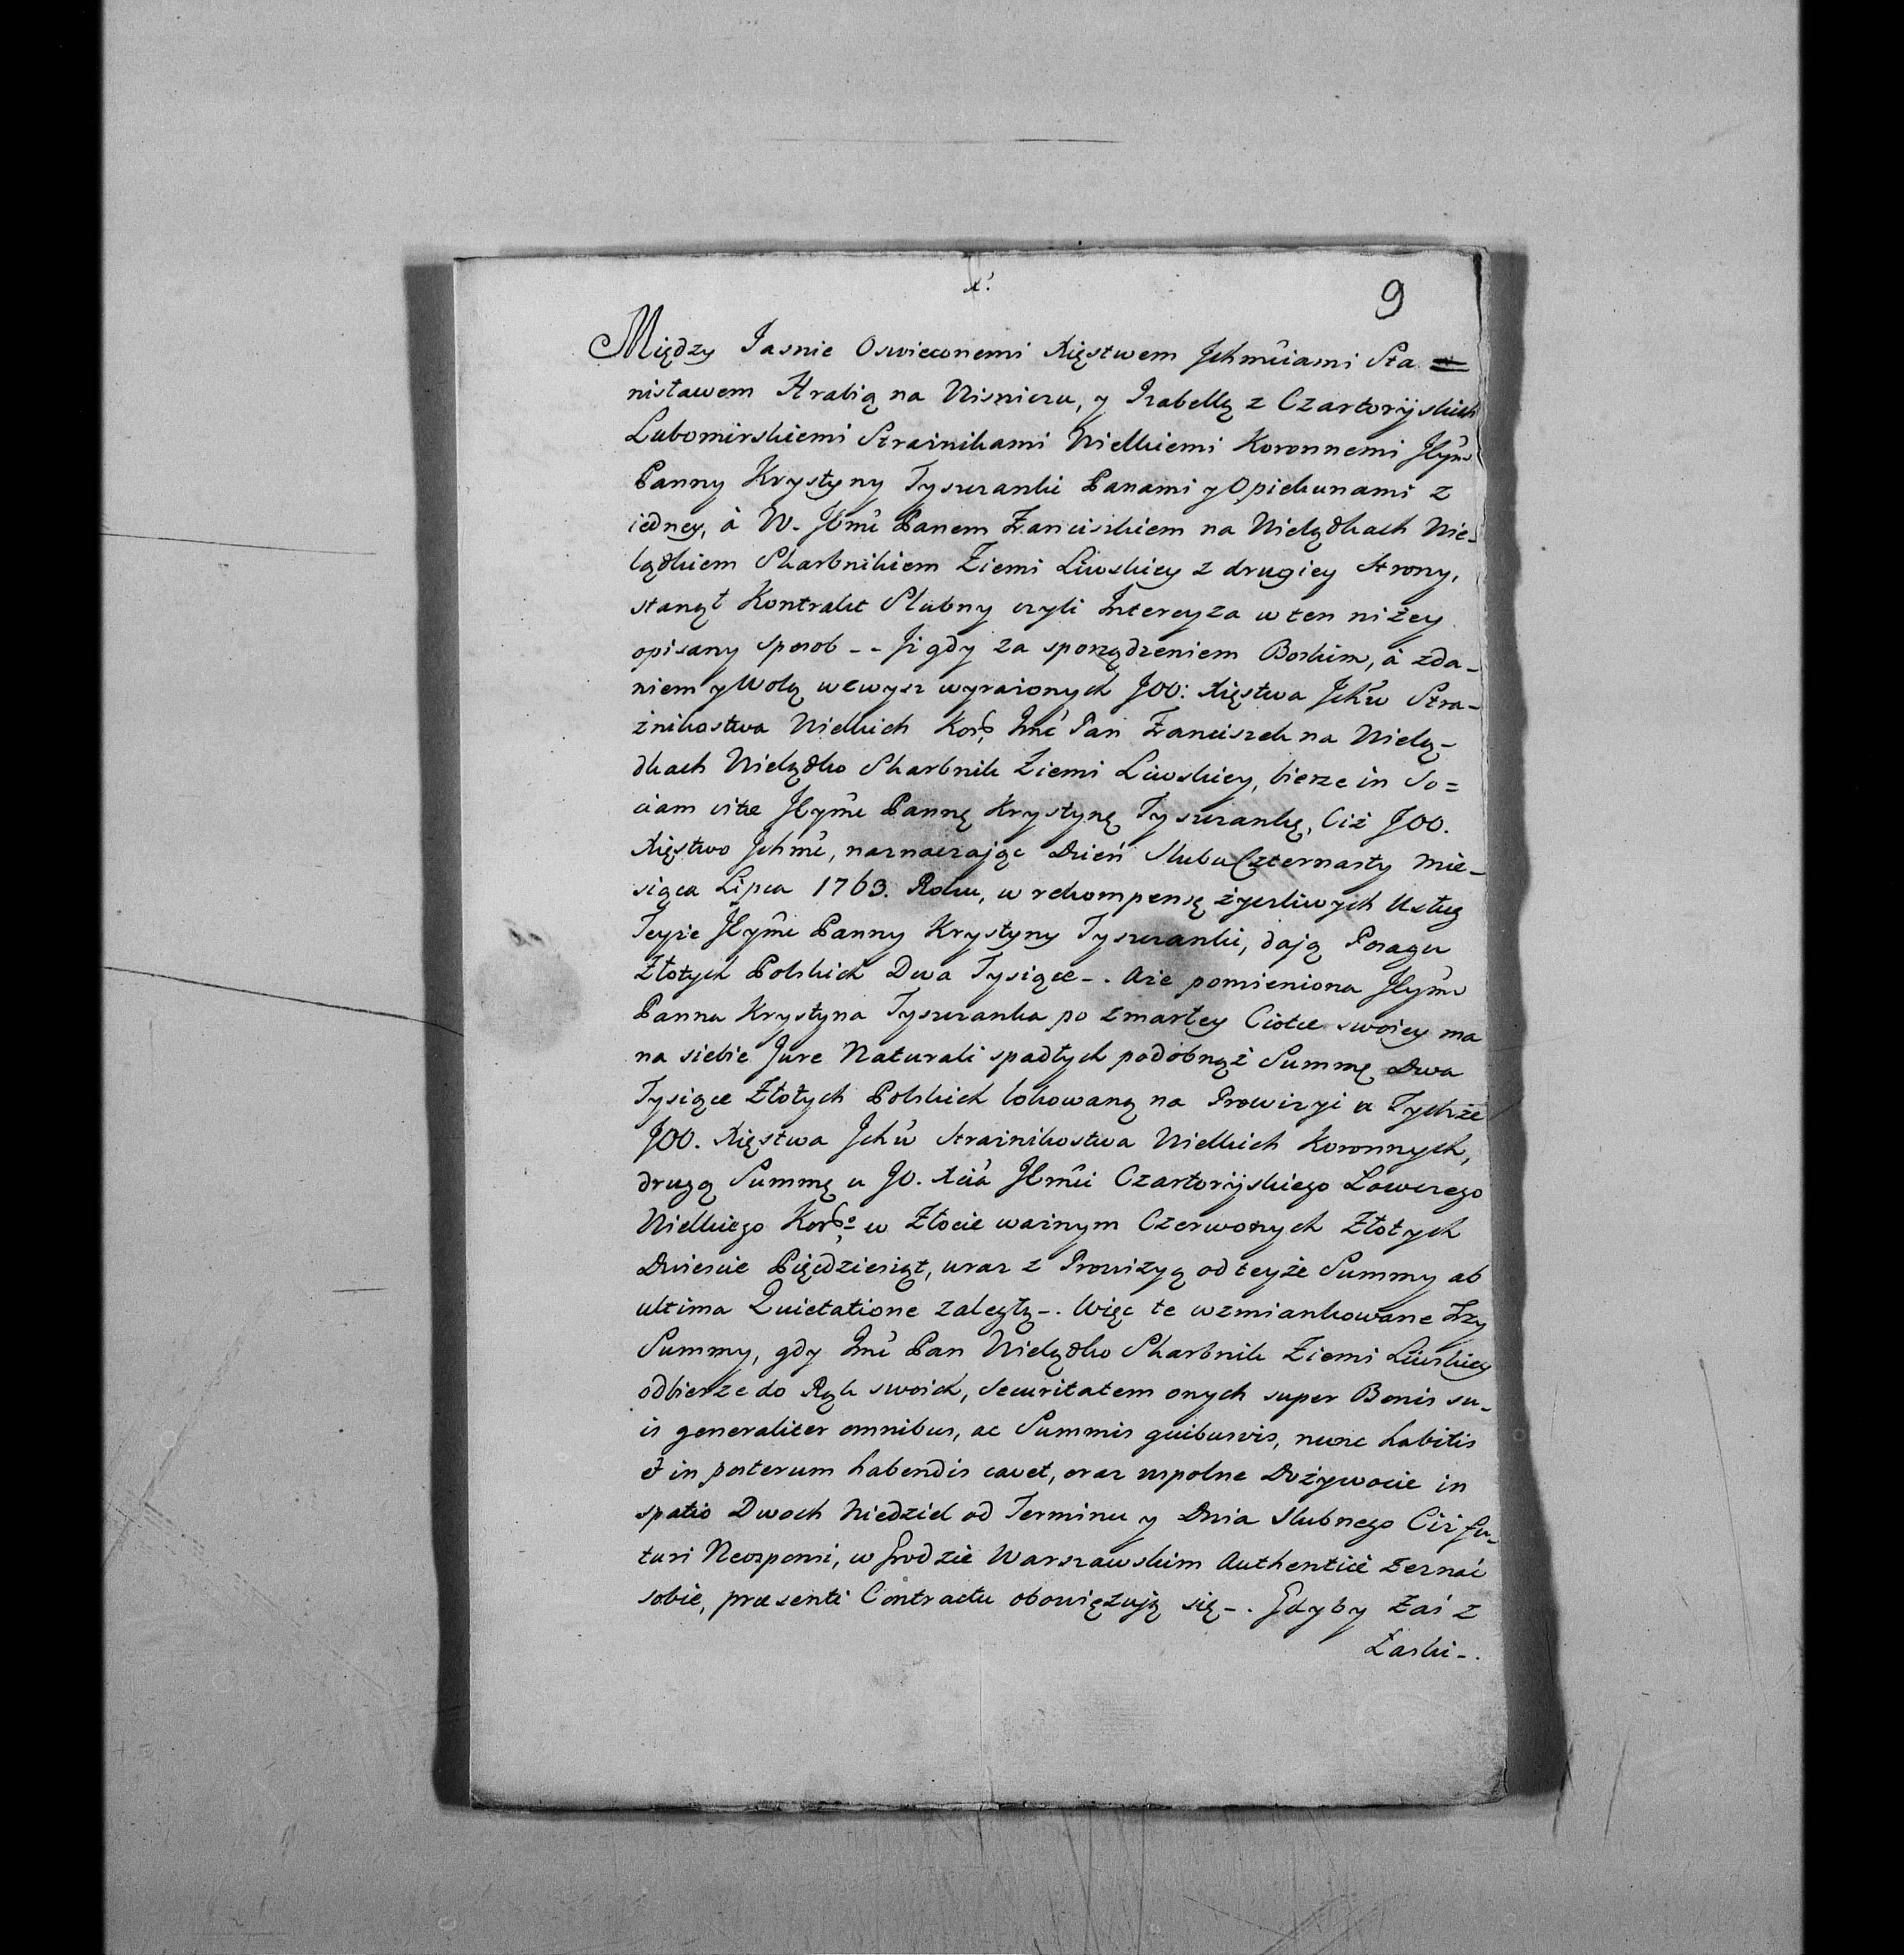 9
Między Jasnie Oswieconemi Xięstwem Jchmciami Sta=
nisławem Hrabią na Wisniczu, y Izabellą z Czartoryskich
Lubomirskiemi Strażnikami Wielkiemi Koronnemi Jeym
Panny Krystyny Tyszczanki Panami y Opiekunami z
iedney, à W. Jmć Panem Franciszkiem na Wielądkach Wie-
lądkiem Skarbnikiem Ziemi Liwskiey z drugiey strony,
stanął Kontrakt Slubny czyli Intercyza w ten niżey
opisany sposob -- Jż gdy za sporządzeniem Boskim, à zda-
niem y Wolą wewysz wyrażonych JOO: Xięstwa Jchw Stra-
żnikostwa Wielkich Kor: Jmć Pan Franciszek na Wielą-
dkach Wielądko Skarbnik Ziemi Liwskiey, bierze in So=
ciam vitæ Jeymć Pannę Krystynę Tyszczankę, Ciż JOO.
Xięstwo Jchmć, naznaczając Dzień Slubu Czternasty Mie-
siąca Lipca 1763. Roku, w rekompensę życzliwych Usług
Teyże Jeymć Panny Krystyny Tyszczanki, dają Posagu
Złotych Polskich Dwa Tysiące -. Aże pomieniona Jeym
Panna Krystyna Tyszczanka po zmarłey Ciotce swoiey ma
na siebie Jure Naturali spadłych podobnąż Summę Dwa
Tysiące Złotych Polskich lokowaną na Prowizyi u Tychże
JOO. Xięstwa Jchw Strażnikostwa Wielkich Koronnych,
drugą Summę u JO. Xcia Jemci Czartoryskiego Łowczego
Wielkiego Kor: w Złocie ważnym Czerwonych Złotych
Dwiescie Pięćdziesiąt, wraz z Prowizyą od teyże Summy ab
ultima Quietatione zaległą -. Więc te wzmiankowane trzy
Summy, gdy Jmć Pan Wielądko Skarbnik Ziemi Liwskiey
odbierze do Rąk swoich, securitatem onych super Bonis su-
is generaliter omnibus, ac Summis quibusvis, nunc habitis
et in posterum habendis cavet, oraz wspolne Dożywocie in
spatio Dwoch Niedziel od Terminu y Dnia Slubnego Ciż fu-
turi Neosponsi, w Grodzie Warszawskim Authenticè zeznać
sobie, præsenti Contractu obowięzują się -. Gdyby zaś z
Łaski -.